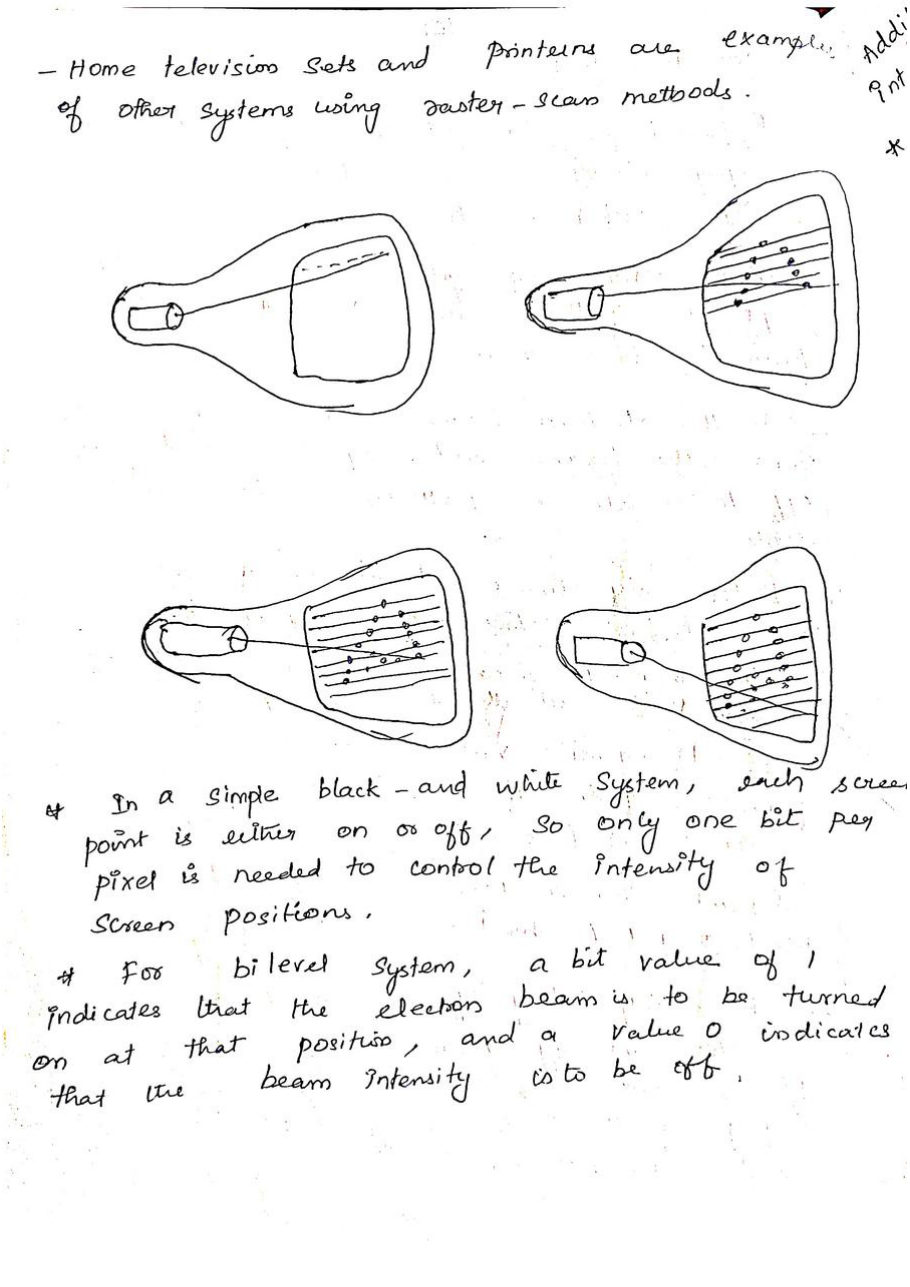 - Home television sets and printerns are example
of other systems using raster-scan methods.
Addi
int
*
* In a simple black-and white system, each scree
point is either on or off, so only one bit per
pixel is needed to control the intensity of
screen positions.
* For bilevel system, a bit value of 1
indicates that the electron beam is to be turned
on at that position, and a value 0 indicates
that the beam intensity is to be off.